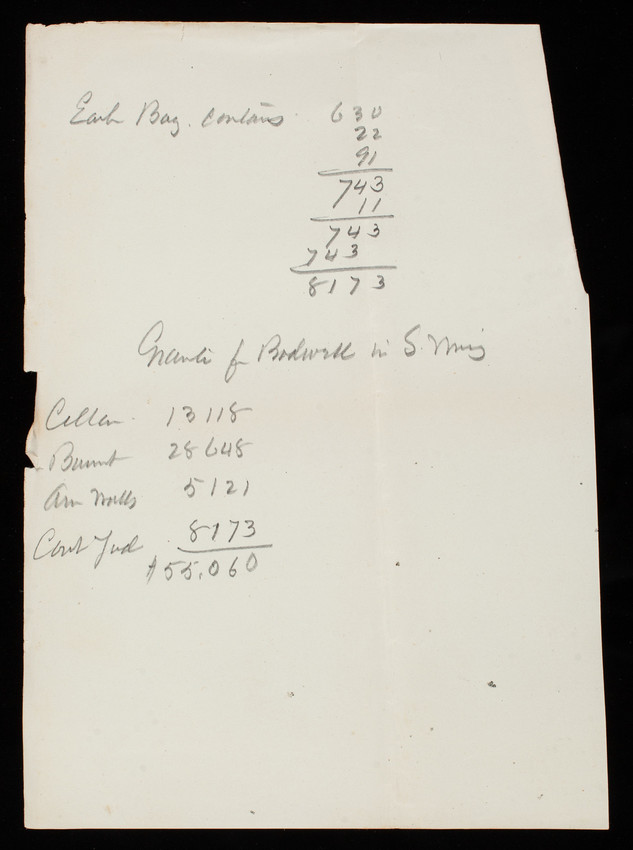 Each Bay. contains 630
22
91
743
11
743
743
8173
Granite for Bodwell in S. Wing
Cellar 13118
Basmt 28648
Area Walls 5121
Court Yard 8173
$55,060